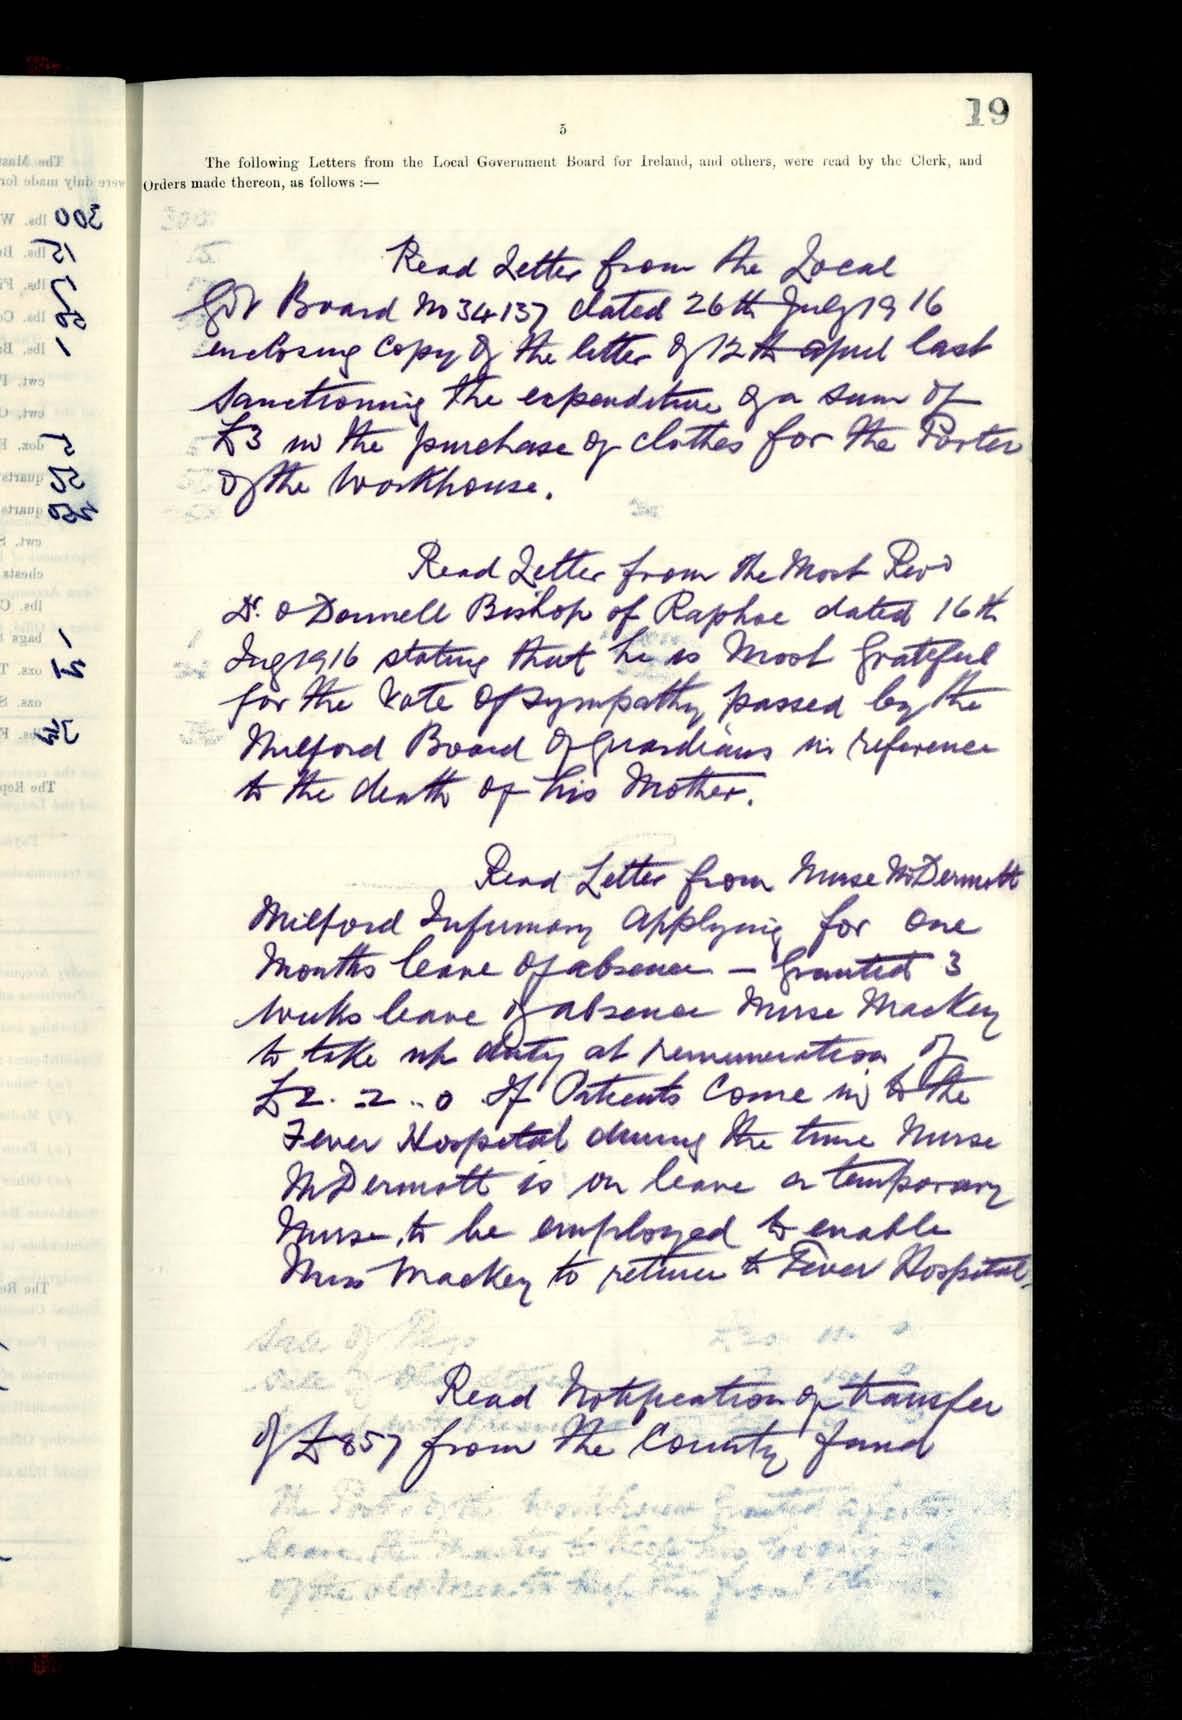 19
5
The following Letters from the Local Government Board for Ireland, and others, were read by the Clerk, and
Orders made thereon, as follows :—
Read Letter from the Local
Gov Board No 34137 dated 26th July 1916
enclosing copy of the letter of 12th april last
sanctioning the expenditure of a sum of
£3 in the purchase of clothes for the Porter
of the Workhouse.
Read Letter from the Most Revd
Dr. O Donnell Bishop of Raphoe dated 16th
1916 stating that he is Most Grateful
for the Vote of sympathy passed by the
Milford Board of Guardians in reference
to the death of his Mother.
Read Letter from Nurse McDermott
Milford Infirmary applying for one
Months leave of absence — Granted 3
weeks leave of absence Nurse Mackey
to take up duty at remuneration of
£2. 2.. 0 If Patients Come in to the
Fever Hospital during the time Nurse
McDermott is on leave a temporary
Nurse to be employed to enable
Miss Mackey to return to Fever Hospital.
Read Notification of transfer
of £857 from the County fund